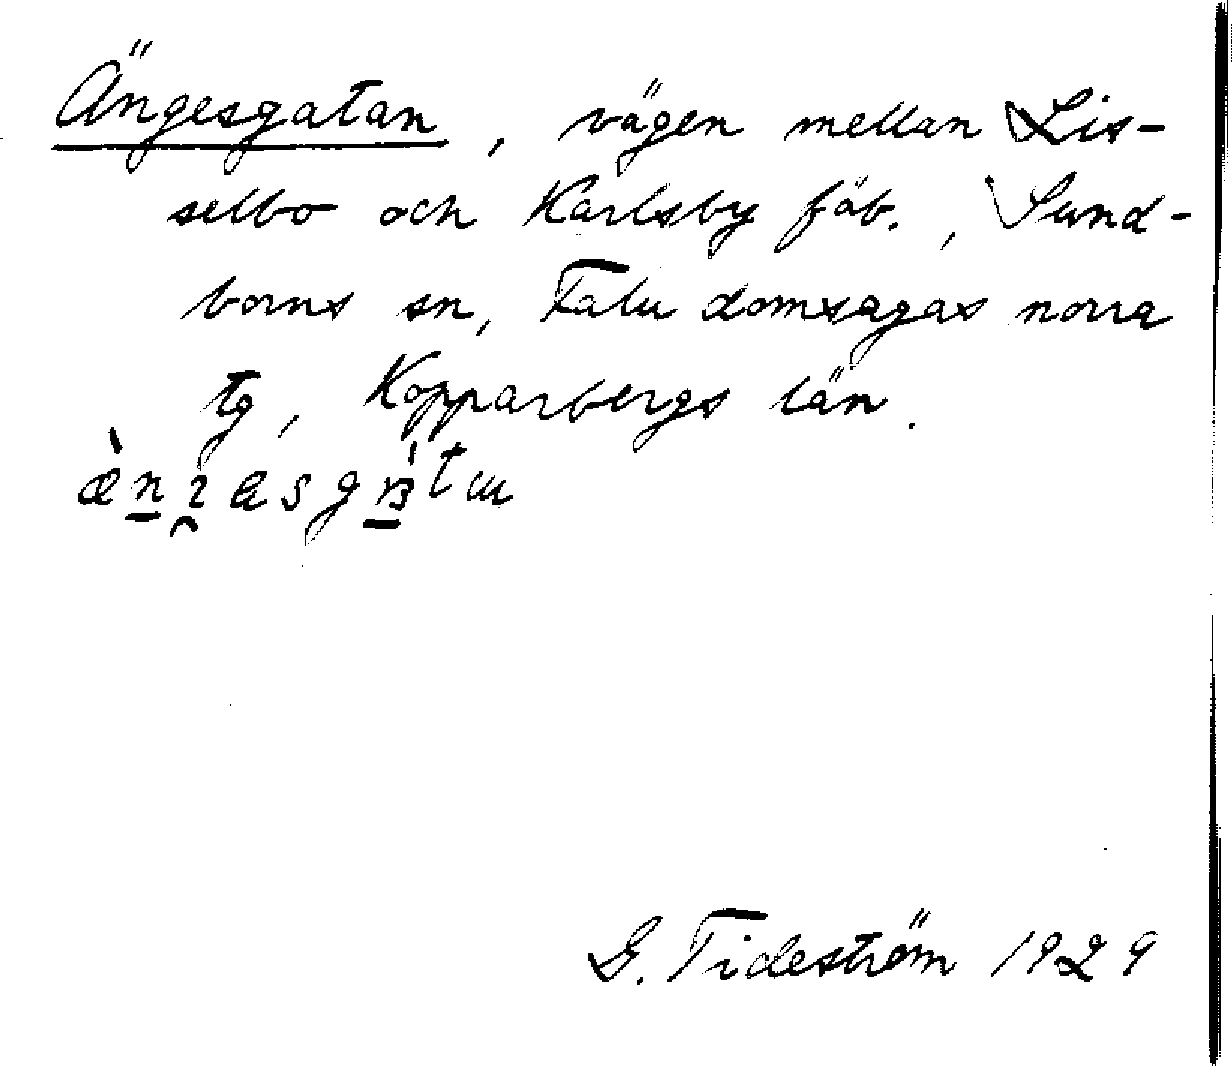 Ängesgatan, vägen mellan Lis-
selbo och Karlsby fäb., Sund-
borns sn, Falu domsagas norra
tg, Kopparbergs län.
G. Tideström 1929